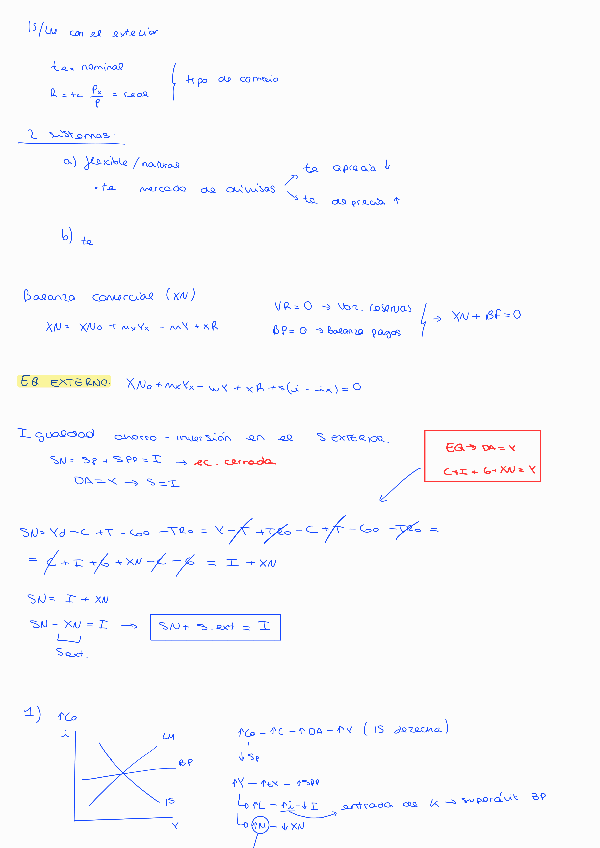 IS/LM con el exterior
te = nominal
R = te Px/P = real
tipo de cambio
2 sistemas:
a) flexible/natural
· te mercado de divisas
te aprecia ↓
te deprecia ↑
b) te
Balanza comercial (XN)
XN = XN0 + mxYx - mY + xR
VR = 0 → Var. reservas
BP = 0 → Balanza pagos
→ XN + BF = 0
EQ EXTERNO: XN0 + mxYx - mY + xR + s(i - ix) = 0
Igualdad ahorro-inversión en el S EXTERIOR.
SN = Sp + SPP = I → ec. cerrada
DA = Y → S = I
EQ → DA = Y
C + I + G + XN = Y
SN = Yd - C + T - G0 - TR0 = Y - T + TR0 - C + T - G0 - TR0 =
= C + I + G + XN - C - G = I + XN
SN = I + XN
SN - XN = I → SN + S.ext = I
Sext.
1) ↑C0
i
LM
BP
IS
Y
↑C0 - ↑C - ↑DA - ↑Y (IS derecha)
↓Sp
↑Y - ↑tY - ↑SPP
↳ ↑L - ↑i - ↓I entrada de K → superávit BP
↳ ↑N - ↓XN